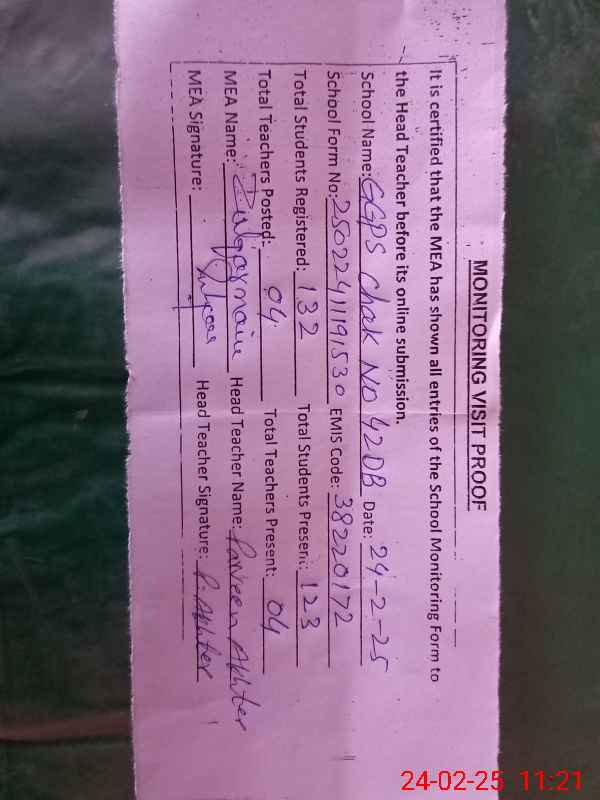 MONITORING VISIT PROOF
It is certified that the MEA has shown all entries of the School Monitoring Form to
the Head Teacher before its online submission.
School Name: GGPS Chak NO 42DB Date: 24-2-25
School Form No: 25022411191530 EMIS Code: 38220172
Total Students Registered: 132 Total Students Present: 123
Total Teachers Posted: 04 Total Teachers Present: 04
MEA Name: Zulqarnain Head Teacher Name: Parveen Akhter
MEA Signature: Head Teacher Signature: P. Akhter
24-02-25 11:21